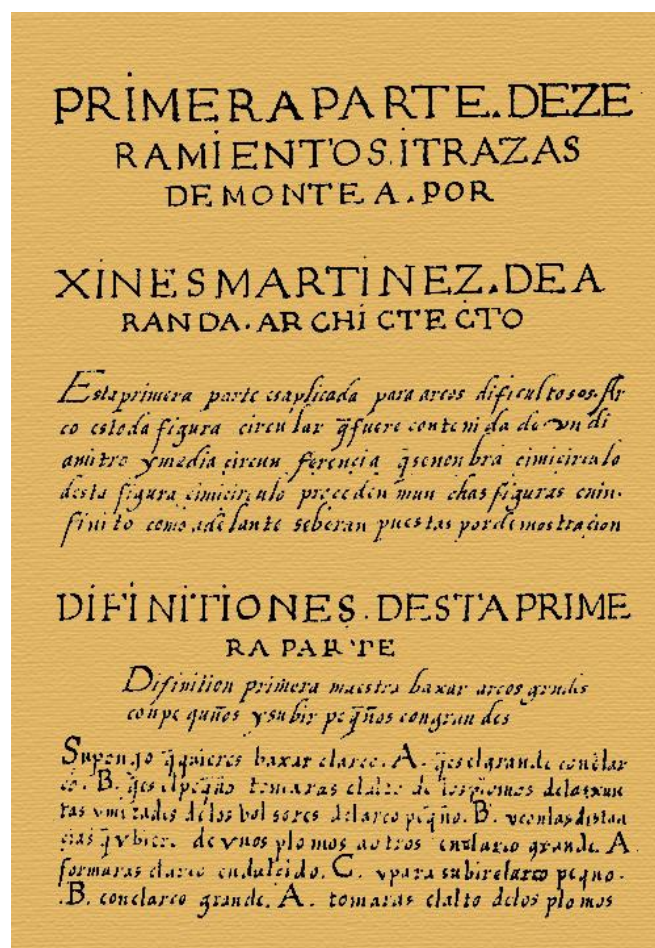 PRIMERA PARTE. DE ZE
RAMIENTOS. I TRAZAS
DE MONTEA. POR
XINES MARTINEZ. DE A
RANDA. ARCHICTECTO
Esta primera parte es aplicada para arcos dificultosos. Ar
co es toda figura circular q̃ fuere contenida de un di
amitro y media circunferencia q̃ se nonbra cimicirculo
desta figura cimicirculo proceden munchas figuras en in-
finito como adelante se beran puestas por demostracion
DIFINITIONES. DESTA PRIME
RA PARTE
Difinition primera maestra baxar arcos grandes
con pequños y subir peq̃ños con grandes
Supongo q̃ quieres baxar el arco. A. q̃ es el grande con el ar
co. B. q̃ es el peq̃ño tomaras el alto de los plomos de las xun
tas y mitades de los bolsores del arco peq̃ño. B. y con las distan
cias q̃ vbiere de vnos plomos a otros en el arco grande. A
formaras el arco endulcido. C. y para subir el arco peq̃no.
.B. con el arco grande. A. tomaras el alto de los plomos